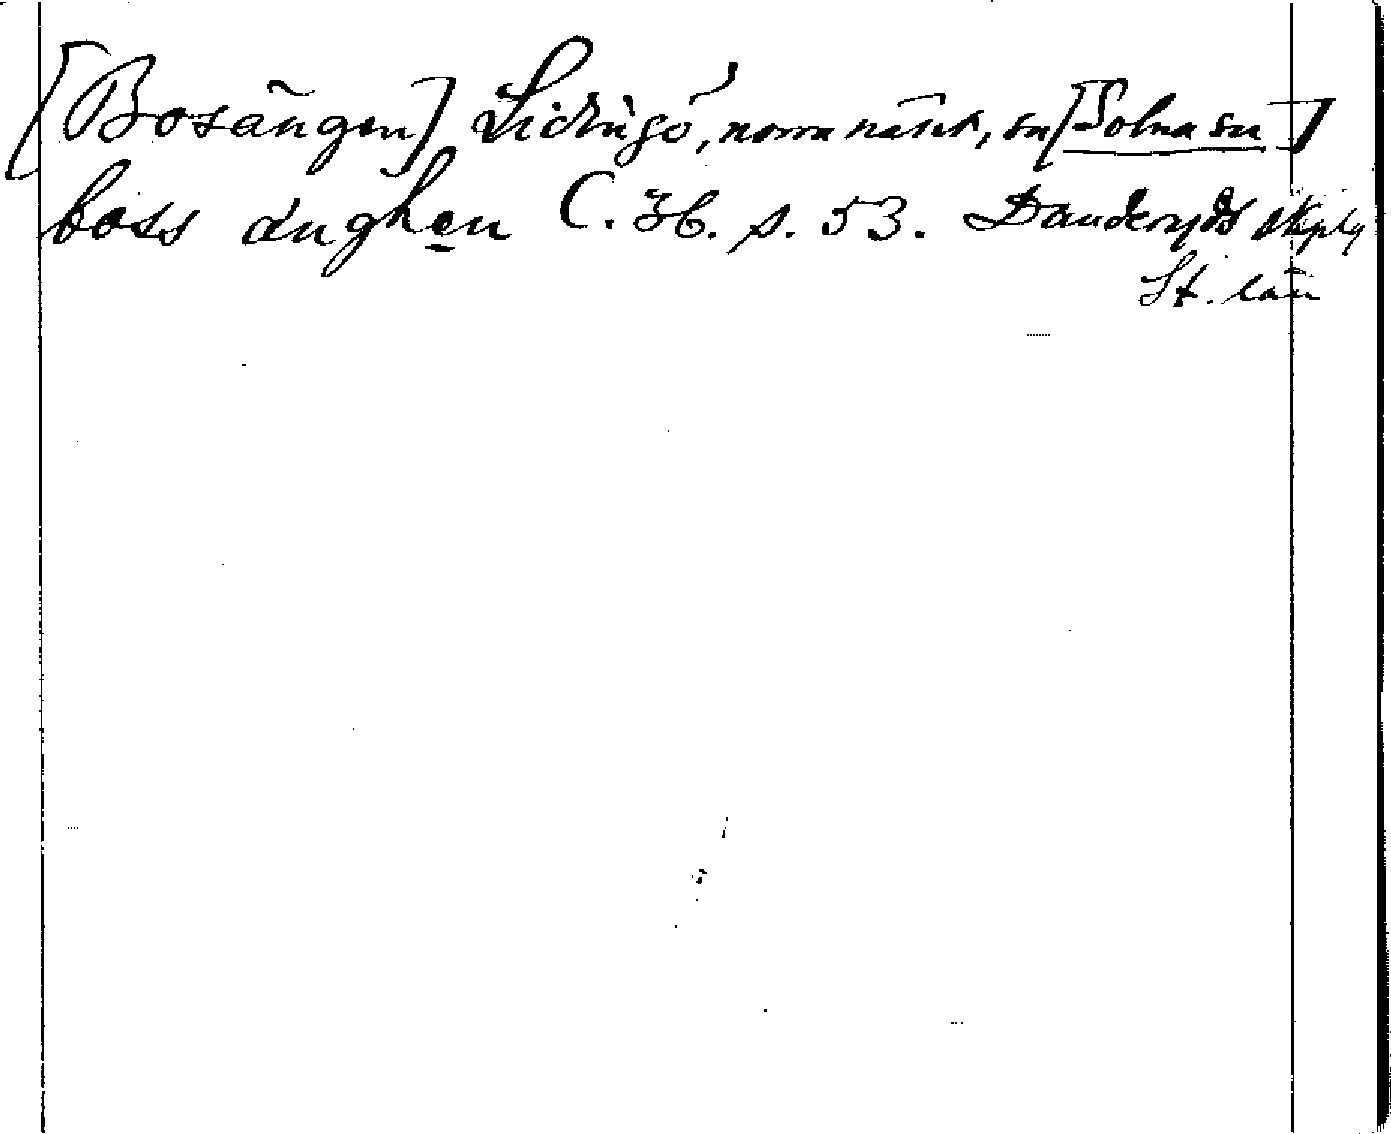 [Bosängen] Lidingö, norra näset, sn [Solna sn]
boss ænghen C. 36. s. 53. Danderyds skplg
St. län